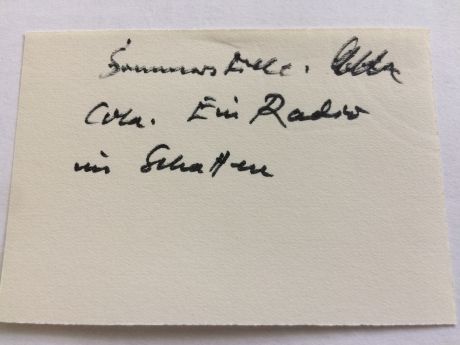 Sommerstille.
Cola. Ein Radio
im Schatten